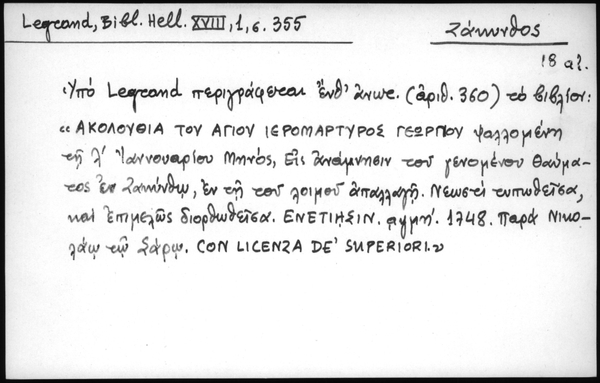 Legrand, Bibl. Hell. XVIII, 1, σ. 355
Ζάκυνθος
18 αἰ.
Ὑπό Legrand περιγράφεται ἔνθ' ἀνωτ. (ἀριθ. 360) τό βιβλίον:
«ΑΚΟΛΟΥΘΙΑ ΤΟΥ ΑΓΙΟΥ ΙΕΡΟΜΑΡΤΥΡΟΣ ΓΕΩΡΓΙΟΥ ψαλλομένη
τῇ λ' Ἰαννουαρίου Μηνός, Εἰς ἀνάμνησιν τοῦ γενομένου θαύμα-
τος ἐν Ζακύνθῳ, ἐν τῇ τοῦ λοιμοῦ ἀπαλλαγῇ. Νεωστί τυπωθεῖσα,
καί ἐπιμελῶς διορθωθεῖσα. ΕΝΕΤΙΗΣΙΝ. αψμη'. 1748. Παρά Νικο-
λάῳ τῷ Σάρῳ. CON LICENZA DE' SUPERIORI.»